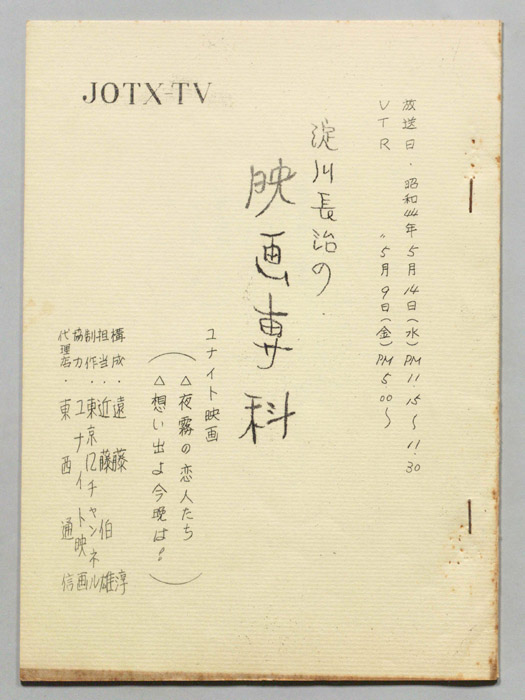 JOTX-TV
放送日・昭和44年5月14日(水)PM11.15〜11.30
VTR 〃 5月9日(金)PM5.00〜
淀川長治の
映画専科
ユナイト映画
(△夜霧の恋人たち
△想い出よ今晩は!)
構成・遠藤淳
担当・近藤伯雄
制作・東京12チャンネル
協力・ユナイト映画
代理店・東西通信